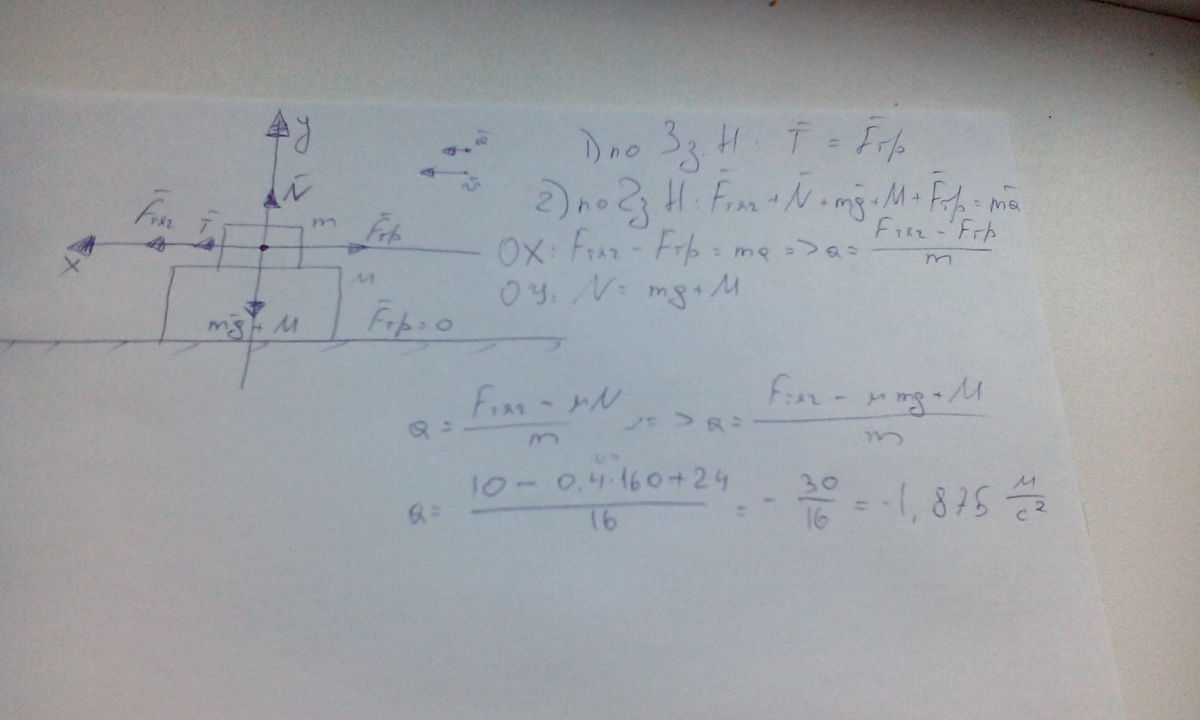 y
N̄
F̄тяг
T̄
m
F̄тр
X
M
m̄g + M
F̄тр = 0
ā
v̄
1) по 3з. Н: T̄ = F̄тр
2) по 2з. Н: F̄тяг + N̄ + mḡ + M + F̄тр = mā
OX: Fтяг - Fтр = ma => a = (Fтяг - Fтр)/m
OY: N = mg + M
a = (Fтяг - μN)/m => a = (Fтяг - μmg + M)/m
a = (10 - 0,4·160 + 24)/16 = - 30/16 = -1,875 м/с²